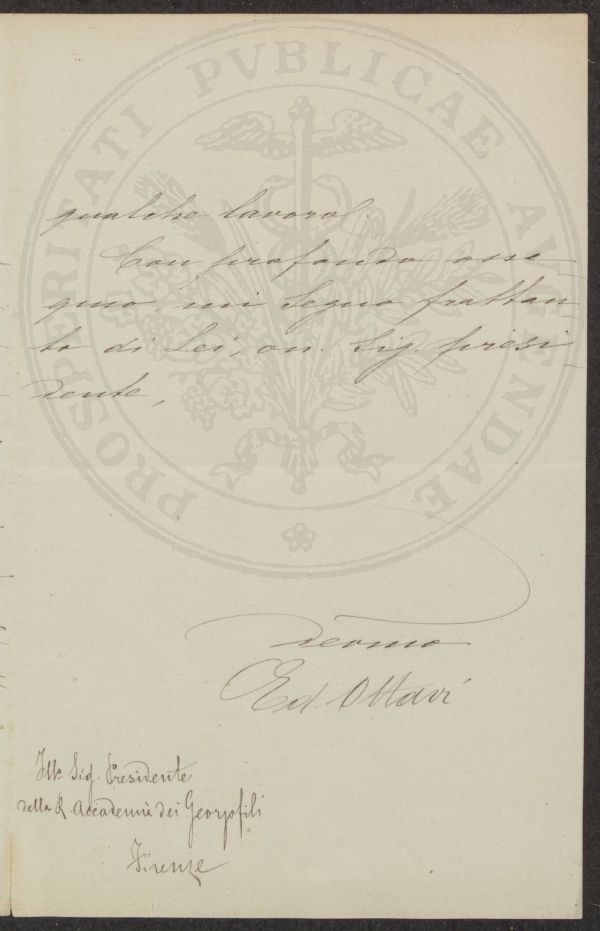 PROSPERITATI PVBLICAE AVGENDAE
qualche lavoro.
Con profondo osse-
quio mi segno frattan-
to di Lei, on. Sig. presi-
dente,
devmo
Ed. Ottavi
Ill. Sig. Presidente
della R. Accademia dei Georgofili
Firenze